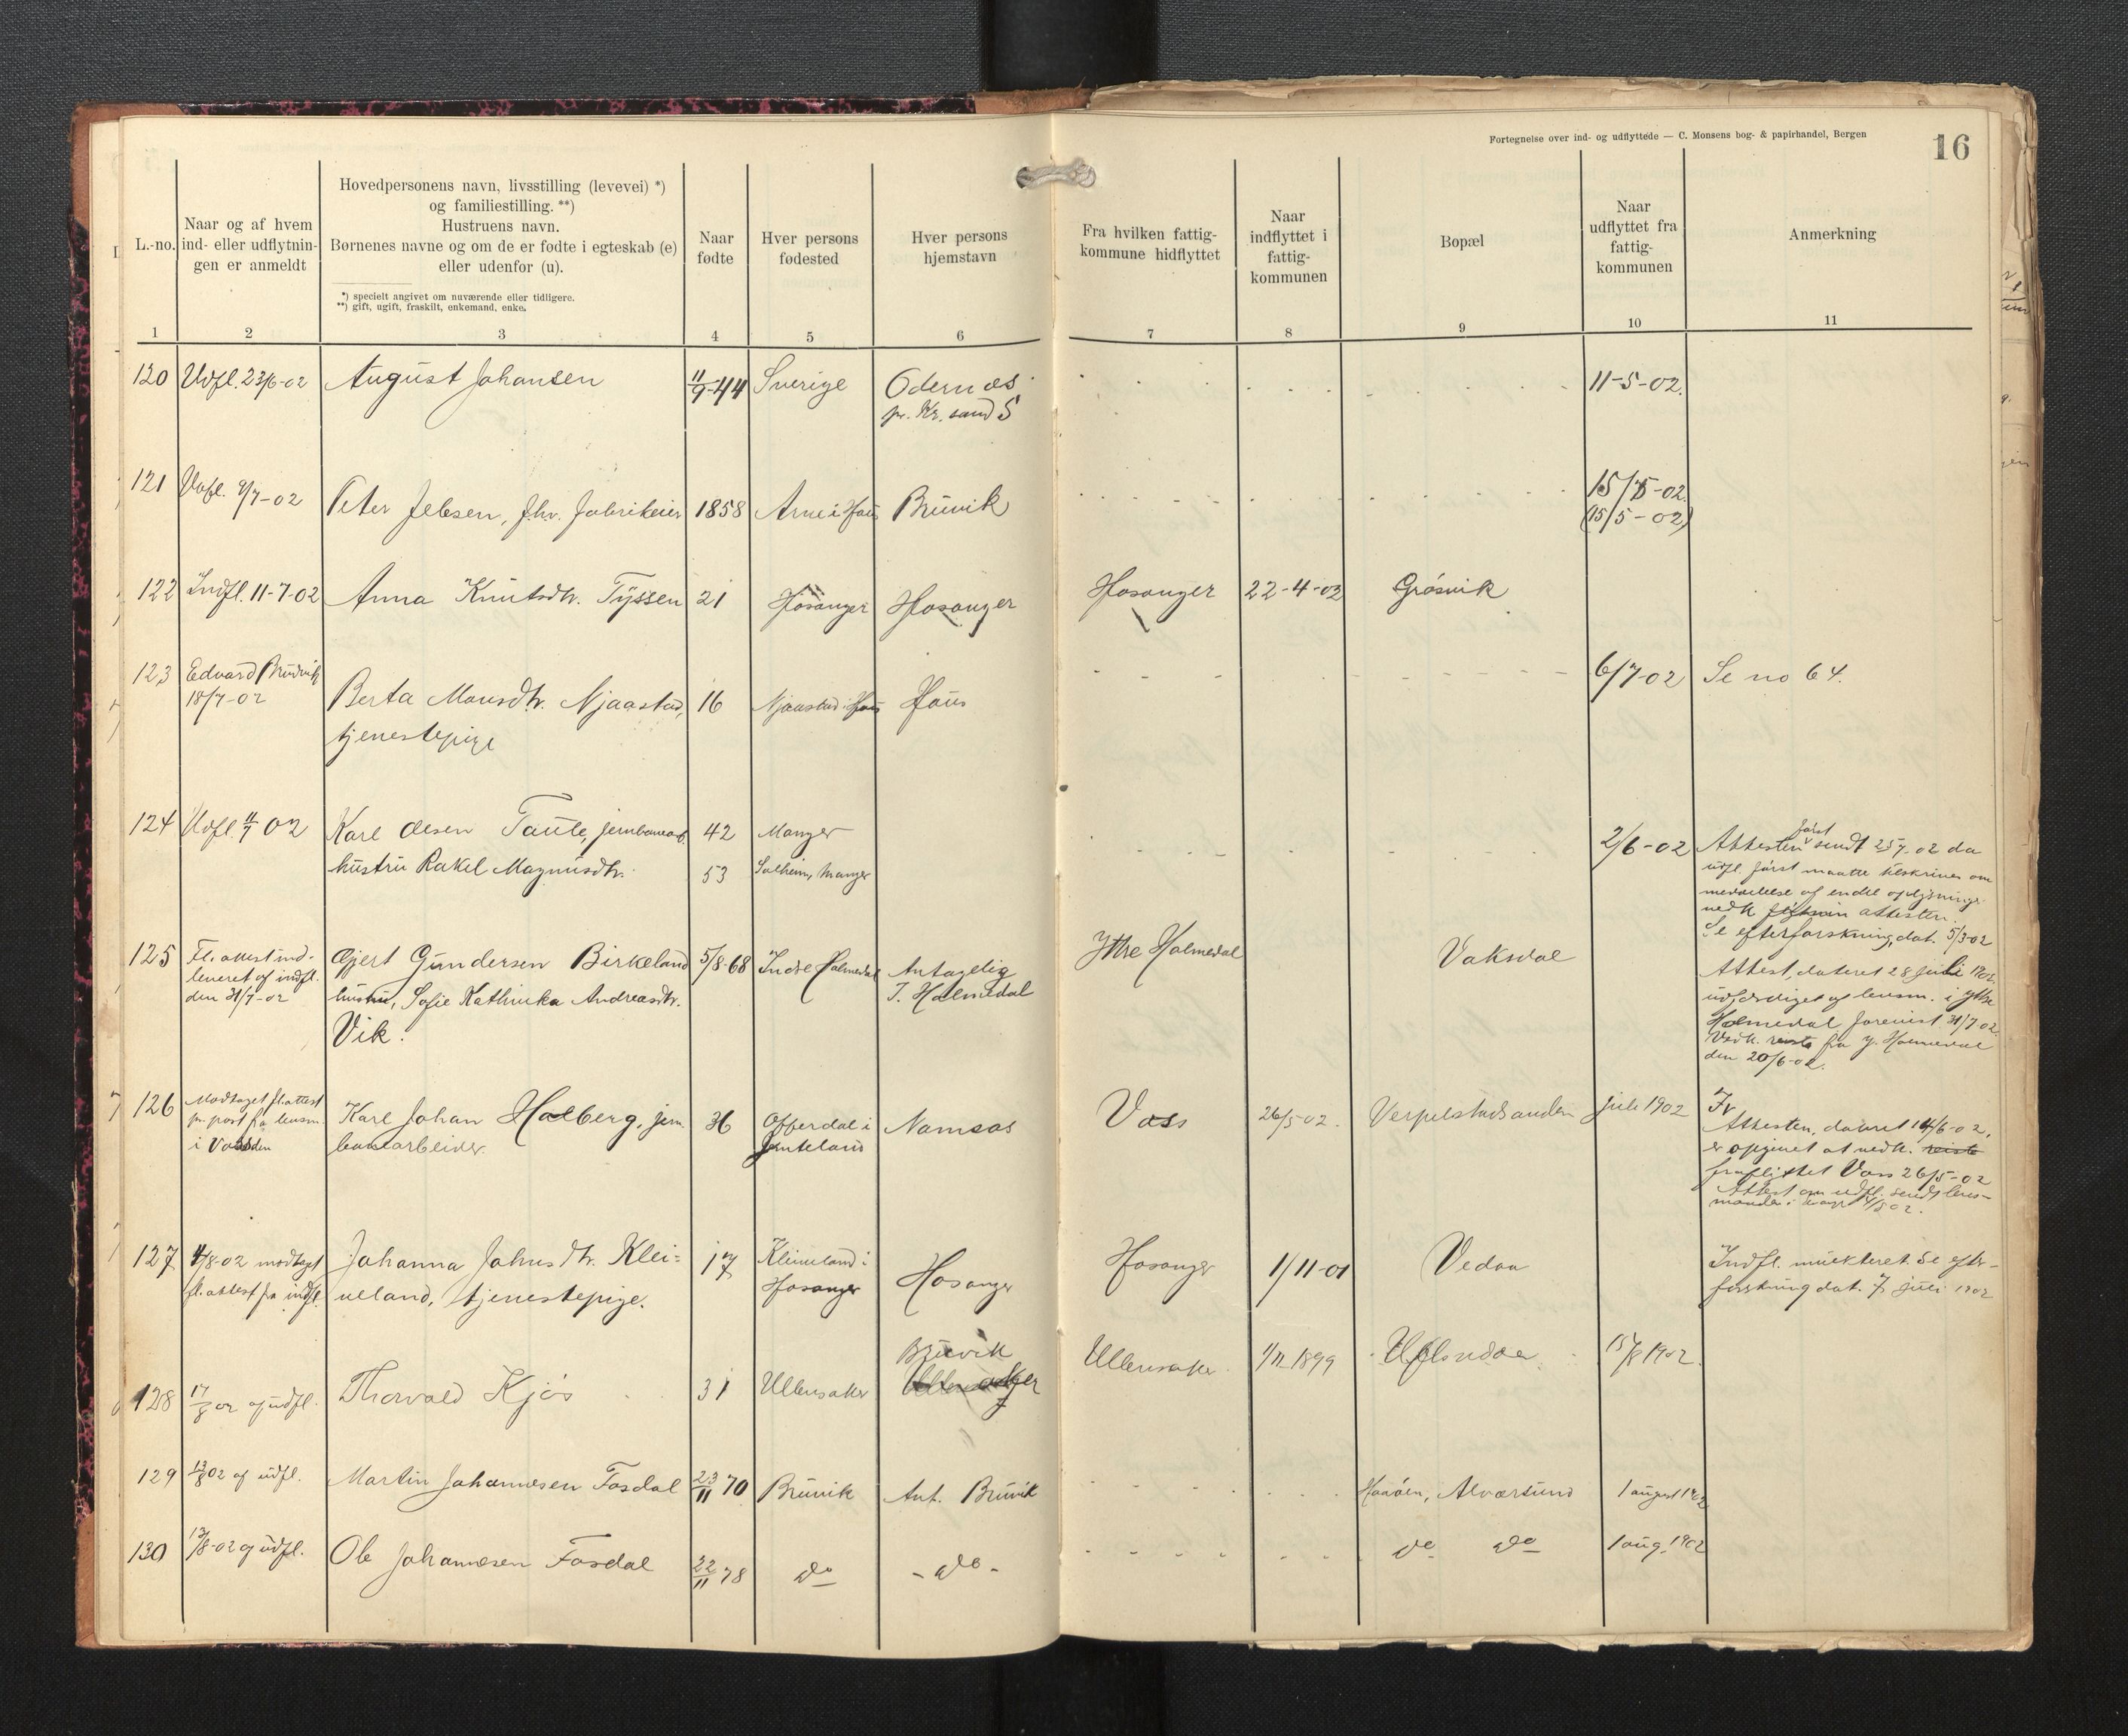 Fortegnelse over ind- og udflyttede — C. Monsens bog- & papirhandel, Bergen
16
L.-no.
Naar og af hvem
ind- eller udflytnin-
gen er anmeldt
Hovedpersonens navn, livsstilling (levevei) *)
og familiestilling. **)
Hustruens navn.
Børnenes navne og om de er fødte i egteskab (e)
eller udenfor (u).
*) specielt angivet om nuværende eller tidligere.
**) gift, ugift, fraskilt, enkemand, enke.
Naar
fødte
Hver persons
fødested
Hver persons
hjemstavn
Fra hvilken fattig-
kommune hidflyttet
Naar
indflyttet i
fattig-
kommunen
Bopæl
Naar
udflyttet fra
fattig-
kommunen
Anmerkning
1 2 3 4 5 6 7 8 9 10 11
120 Udfl. 23/6-02 August Johansen 11/9-44 Sverige Odernæs 11-5-02.
pr. Kr.sand S
121 Udfl. 9/7-02 Peter Jebsen, fhv. fabrikeier 1858 Arne i Haus Bruvik 15/5-02.
(15/5-02)
122 Indfl. 11-7-02 Anna Knutsdtr. Tyssen 21 Hosanger Hosanger Hosanger 22-4-02 Grøsvik
123 Edvard Bruvik
18/7-02 Berta Monsdtr. Njaastad, 16 Njaastad i Haus Haus 6/7-02 Se no 64.
tjenestepige
124 Udfl. 11/7 02 Karl Olsen Taule, jernbanearb. 42 Manger 2/6-02 Attesten først sendt 25/7-02 da
hustru Rakel Magnusdtr. 53 Solheim, Manger udfl. først maatte tilskrives om
meddelelse af endel oplysninger
vedk. attesten.
Se efterforskning, dat. 5/3-02
125 Fl.attest ind-
leveret af indfl.
den 31/7-02
Gjert Gundersen Birkeland 5/8-68 Indre Holmedal Antagelig
I. Holmedal Ytre Holmedal Vaksdal
hustru, Sofie Kathinka Andreasdtr.
Vik.
Attest, dateret 28 juli 1902,
udfærdiget af lensm. i ytre
Holmedal forevist 31/7 02.
Vedk. reiste fra y. Holmedal
den 20/6-02.
126 Modtaget fl.attest
pr. post fra lensm.
i Vossden
Karl Johan Halberg, jern-
banearbeider. 36 Offerdal i
Jemteland Namsos Voss 26/5-02. Verpelstadsanden juli 1902
Fr
Attesten, dateret 14/6-02,
er opgivet at vedk. reiste
fraflyttet Voss 26/5-02
Attest om udfl. sendt lens-
manden i
127 4/8-02 modtaget
fl.attest fra indfl.
Johanna Johnsdtr. Klei-
veland, tjenestepige. 17 Kleiveland i
Hosanger Hosanger Hosanger 1/11-01 Vedaa
Indfl. mulkteret. Se efter-
forskning dat. 7 juli 1902
128 17/8 02 af udfl. Thorvald Kjøs 31 Ullensaker Bruvik Ullensaker 1/11 1899 15/8 1902.
129 13/8 02 af udfl. Martin Johannesen Fosdal 23/11 70 Bruvik Ant. Bruvik Haaøen, Alversund 1 august 1902
130 13/8-02 af udfl. Ole Johannesen Fosdal 22/11 78 do - do - do do 1 aug. 1902